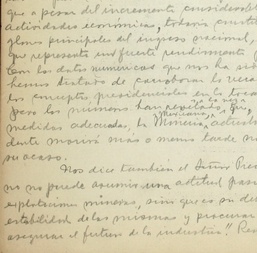 que a pesar del incremento considerable
actividades económicas, todavía constit
glones principales del ingreso nacional,
que representa un fuerte rendimiento
con los datos numéricos que nos ha si
hemos tratado de corroborar lo reca
los conceptos presidenciales en lo toca
pero los números han repetido, que,
medidas adecuadas, la Minería actual
Mexicana,
dente morirá más o menos tarde
su ocaso.
Nos dice también el Señor Pres
no no puede asumir una actitud pasi
explotaciones mineras, sino que es su de
estabilidad de las mismas y procurar
asegurar el futuro de la industria". Re